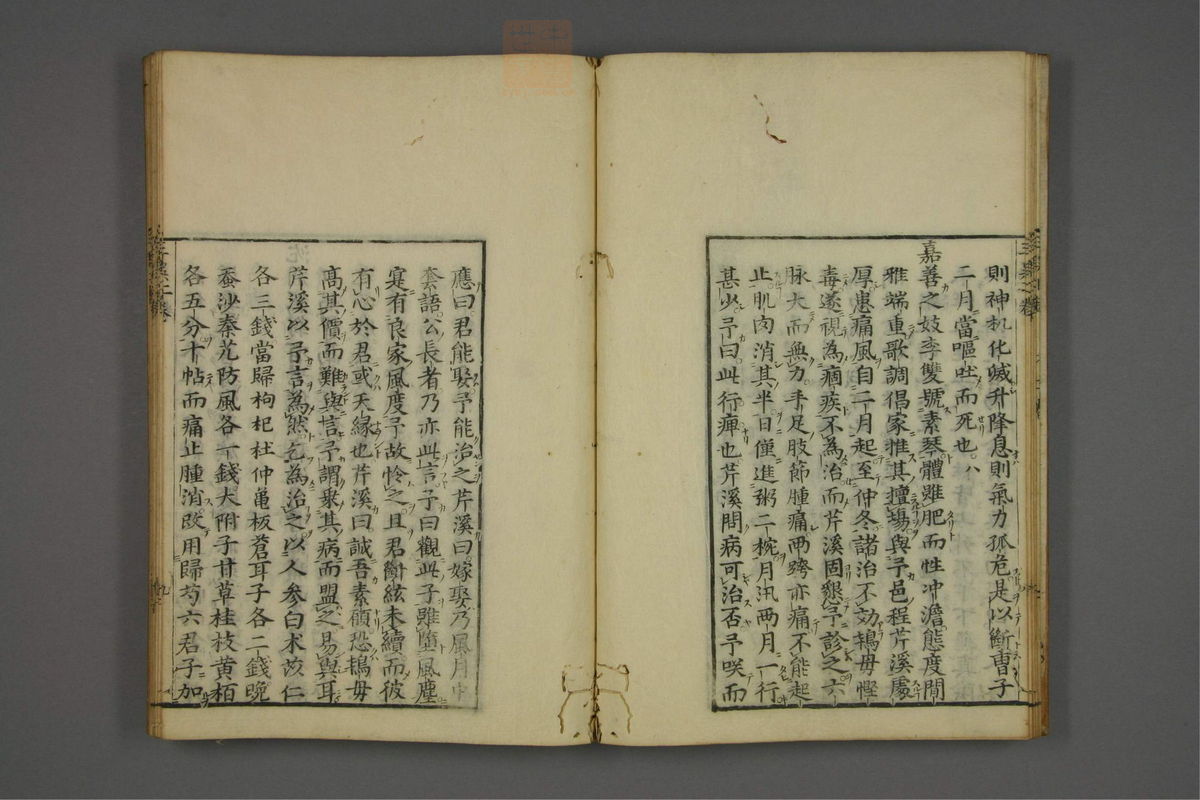 則神机化滅升降息則氣力孤危是以斷曹子
二月當嘔吐而死也
嘉善之妓李雙號素琴體雖肥而性冲澹態度閒
雅端重歌調倡家推其擅場與予邑程芹溪處
厚患痛風自二月起至仲冬諸治不効鴇母慳
毒遂視為痼疾不為治而芹溪固懇予診之六
脉大而無力手足肢節腫痛兩跨亦痛不能起
止肌肉消其半日僅進粥二椀月汛兩月一行
甚少予曰此行痺也芹溪問病可治否予咲而
應曰君能娶予能治之芹溪曰嫁娶乃風月中
套語公長者乃亦此言予曰觀此子雖墮風塵
寔有良家風度予故怜之且君斷絃未續而彼
有心於君或天緣也芹溪曰誠吾素願恐鴇毋
高其價而難與言予謂乘其病而盟之易與耳
芹溪以予言為然乞為治之以人参白术薏仁
各三錢當歸枸杞杜仲亀板蒼耳子各二錢晩
蚕沙秦艽防風各一錢大附子甘草桂枝黄栢
各五分十帖而痛止腫消改用歸芍六君子加